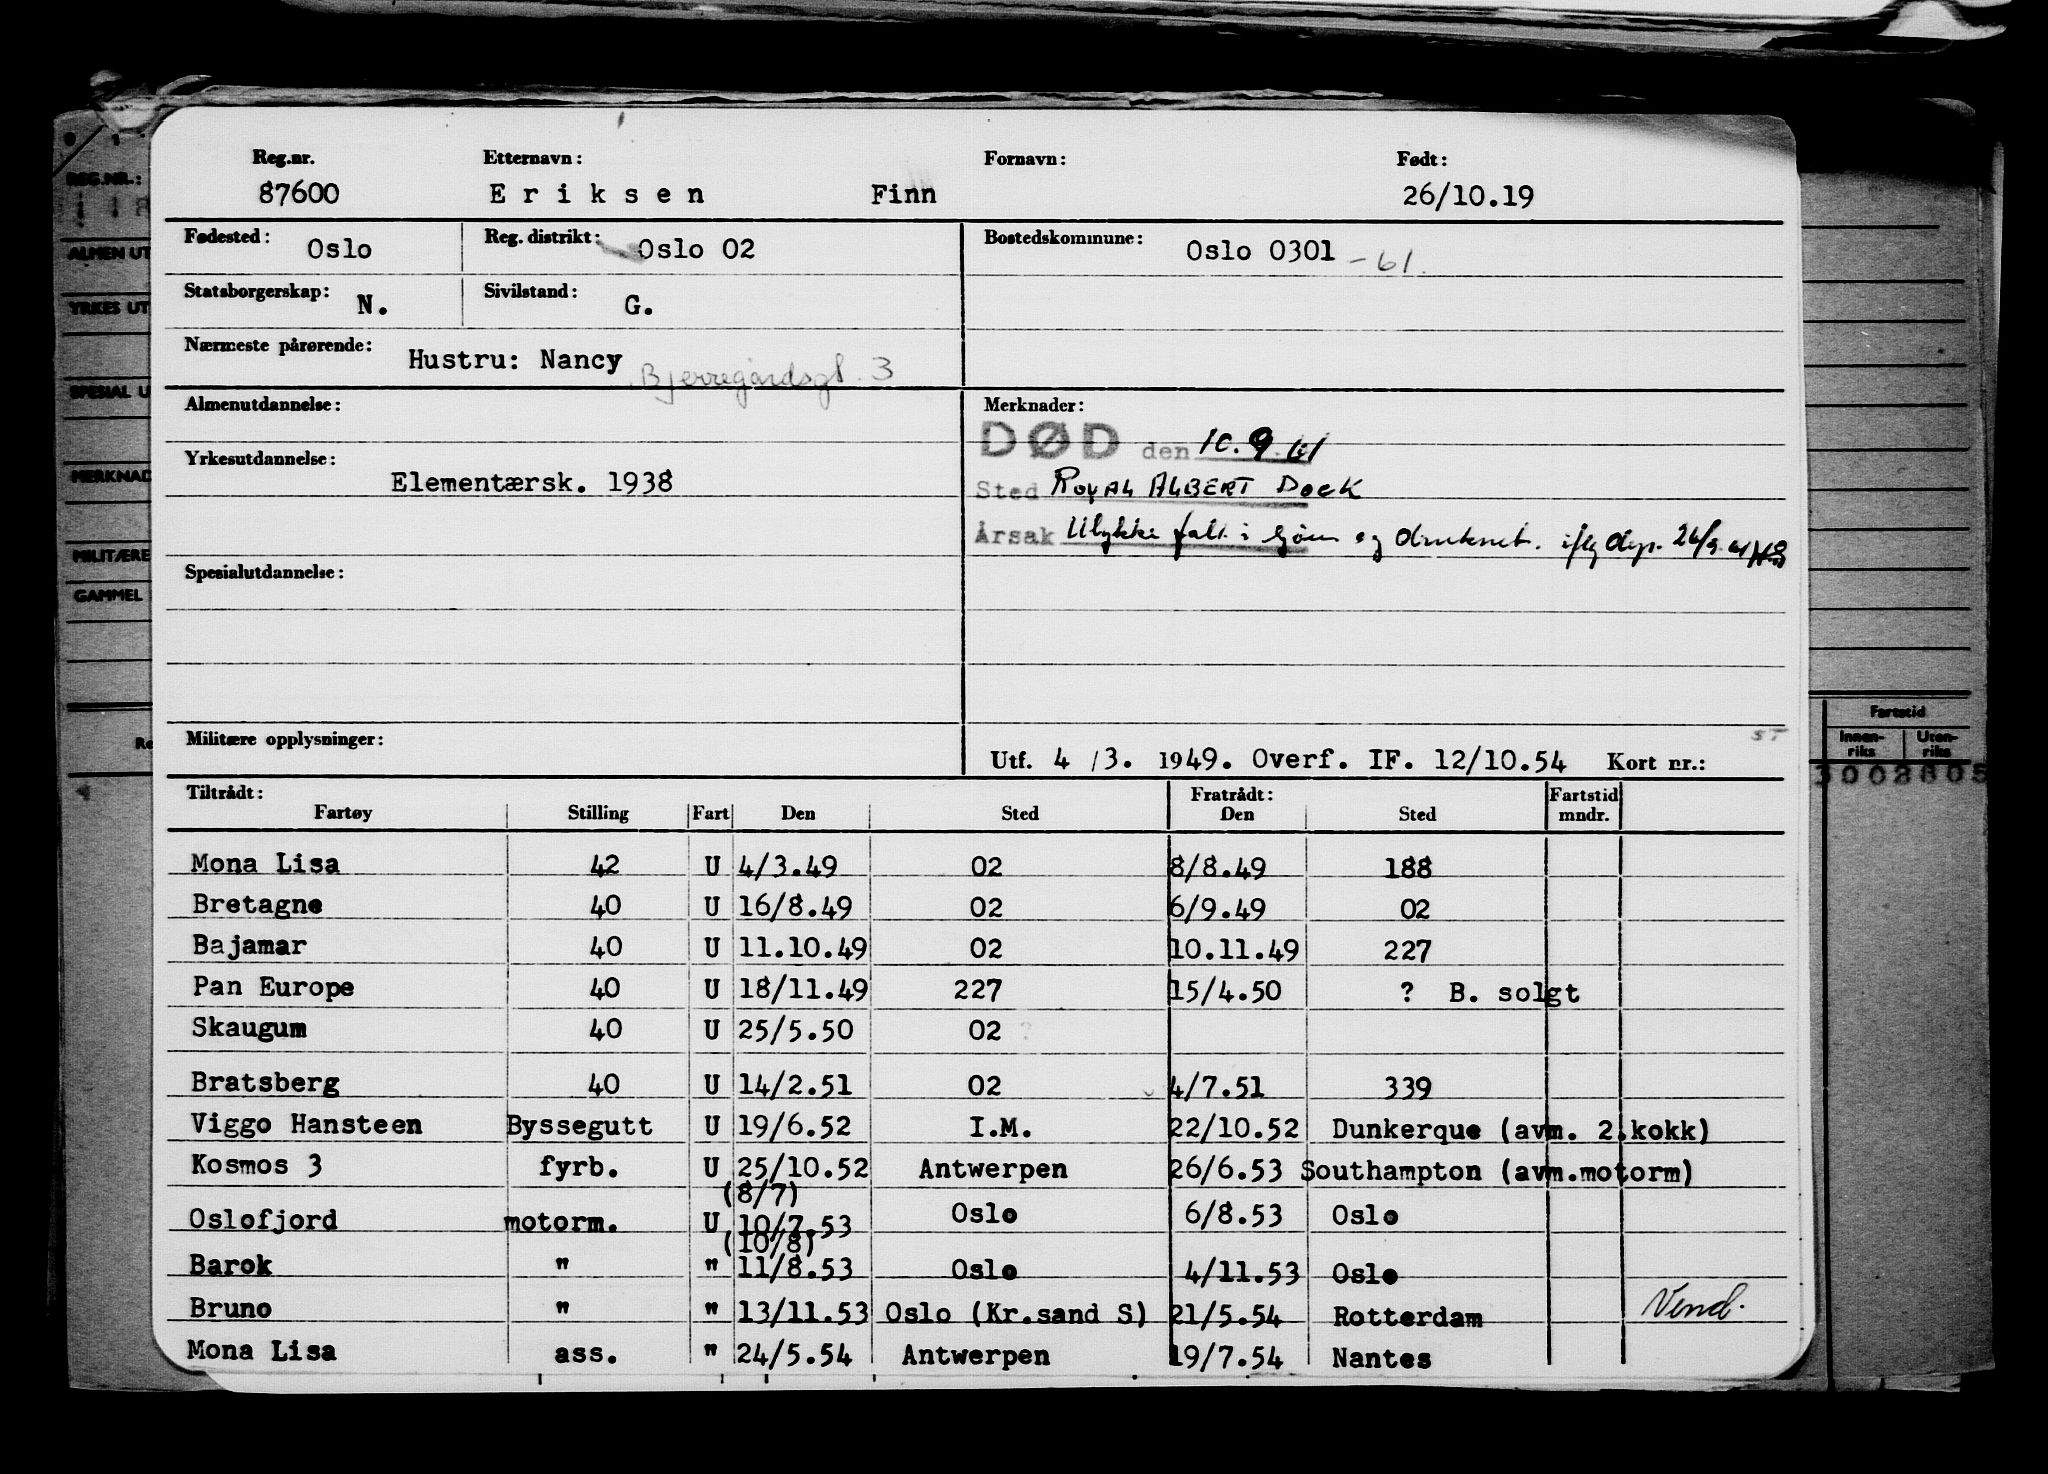 Reg.nr. Etternavn: Fornavn: Født:
87600 Eriksen Finn 26/10.19
Fødested: Oslo Reg. distrikt: Oslo 02 Bostedskommune: Oslo 0301 -61.
Statsborgerskap: N. Sivilstand: G.
Nærmeste pårørende: Hustru: Nancy Bjerregårdsgt. 3
Almenutdannelse: Merknader:
DØD den 10.9.61
Yrkesutdannelse: Elementærsk. 1938 Sted ROYAL ALBERT DOCK
Årsak Ulykke falt i sjøen og druknet. iflg dep. 26/9.61
Spesialutdannelse:
Militære opplysninger: Utf. 4/3. 1949. Overf. IF. 12/10.54 Kort nr.: ST
Tiltrådt: Fratrådt: Fartstid
Fartøy Stilling Fart Den Sted Den Sted mndr.
Mona Lisa 42 U 4/3.49 02 8/8.49 188
Bretagne 40 U 16/8.49 02 6/9.49 02
Bajamar 40 U 11.10.49 02 10.11.49 227
Pan Europe 40 U 18/11.49 227 15/4.50 ? B. solgt
Skaugum 40 U 25/5.50 02 ?
Bratsberg 40 U 14/2.51 02 4/7.51 339
Viggo Hansteen Byssegutt U 19/6.52 I.M. 22/10.52 Dunkerque (avm. 2.kokk)
Kosmos 3 fyrb. U 25/10.52 Antwerpen 26/6.53 Southampton (avm.motorm)
(8/7)
Oslofjord motorm. U 10/7.53 Oslo 6/8.53 Oslo
(10/8)
Barok " " 11/8.53 Oslo 4/11.53 Oslo
Bruno " " 13/11.53 Oslo (Kr.sand S) 21/5.54 Rotterdam Vend.
Mona Lisa ass. " 24/5.54 Antwerpen 19/7.54 Nantes
REG.NR.:
ALMEN UT
YRKES UT
SPESIAL U
MERKNAD
MILITÆRE
GAMMEL
Re
Fartstid
Innen-riks Uten-riks